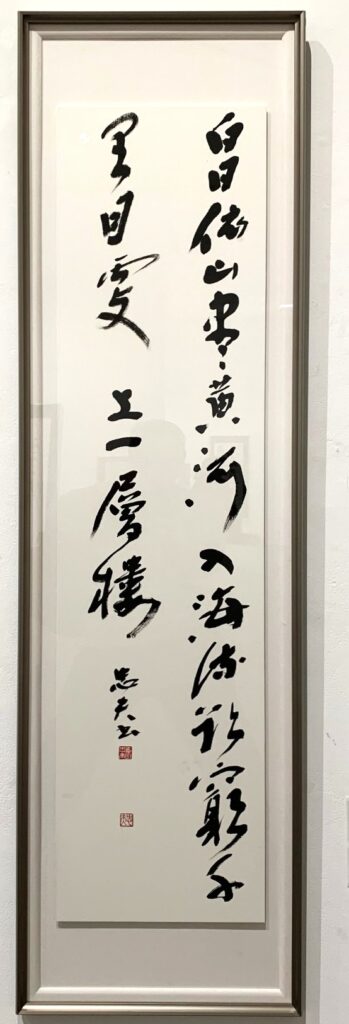 白日依山盡黄河入海流欲窮千
里目更上一層樓
忠夫书